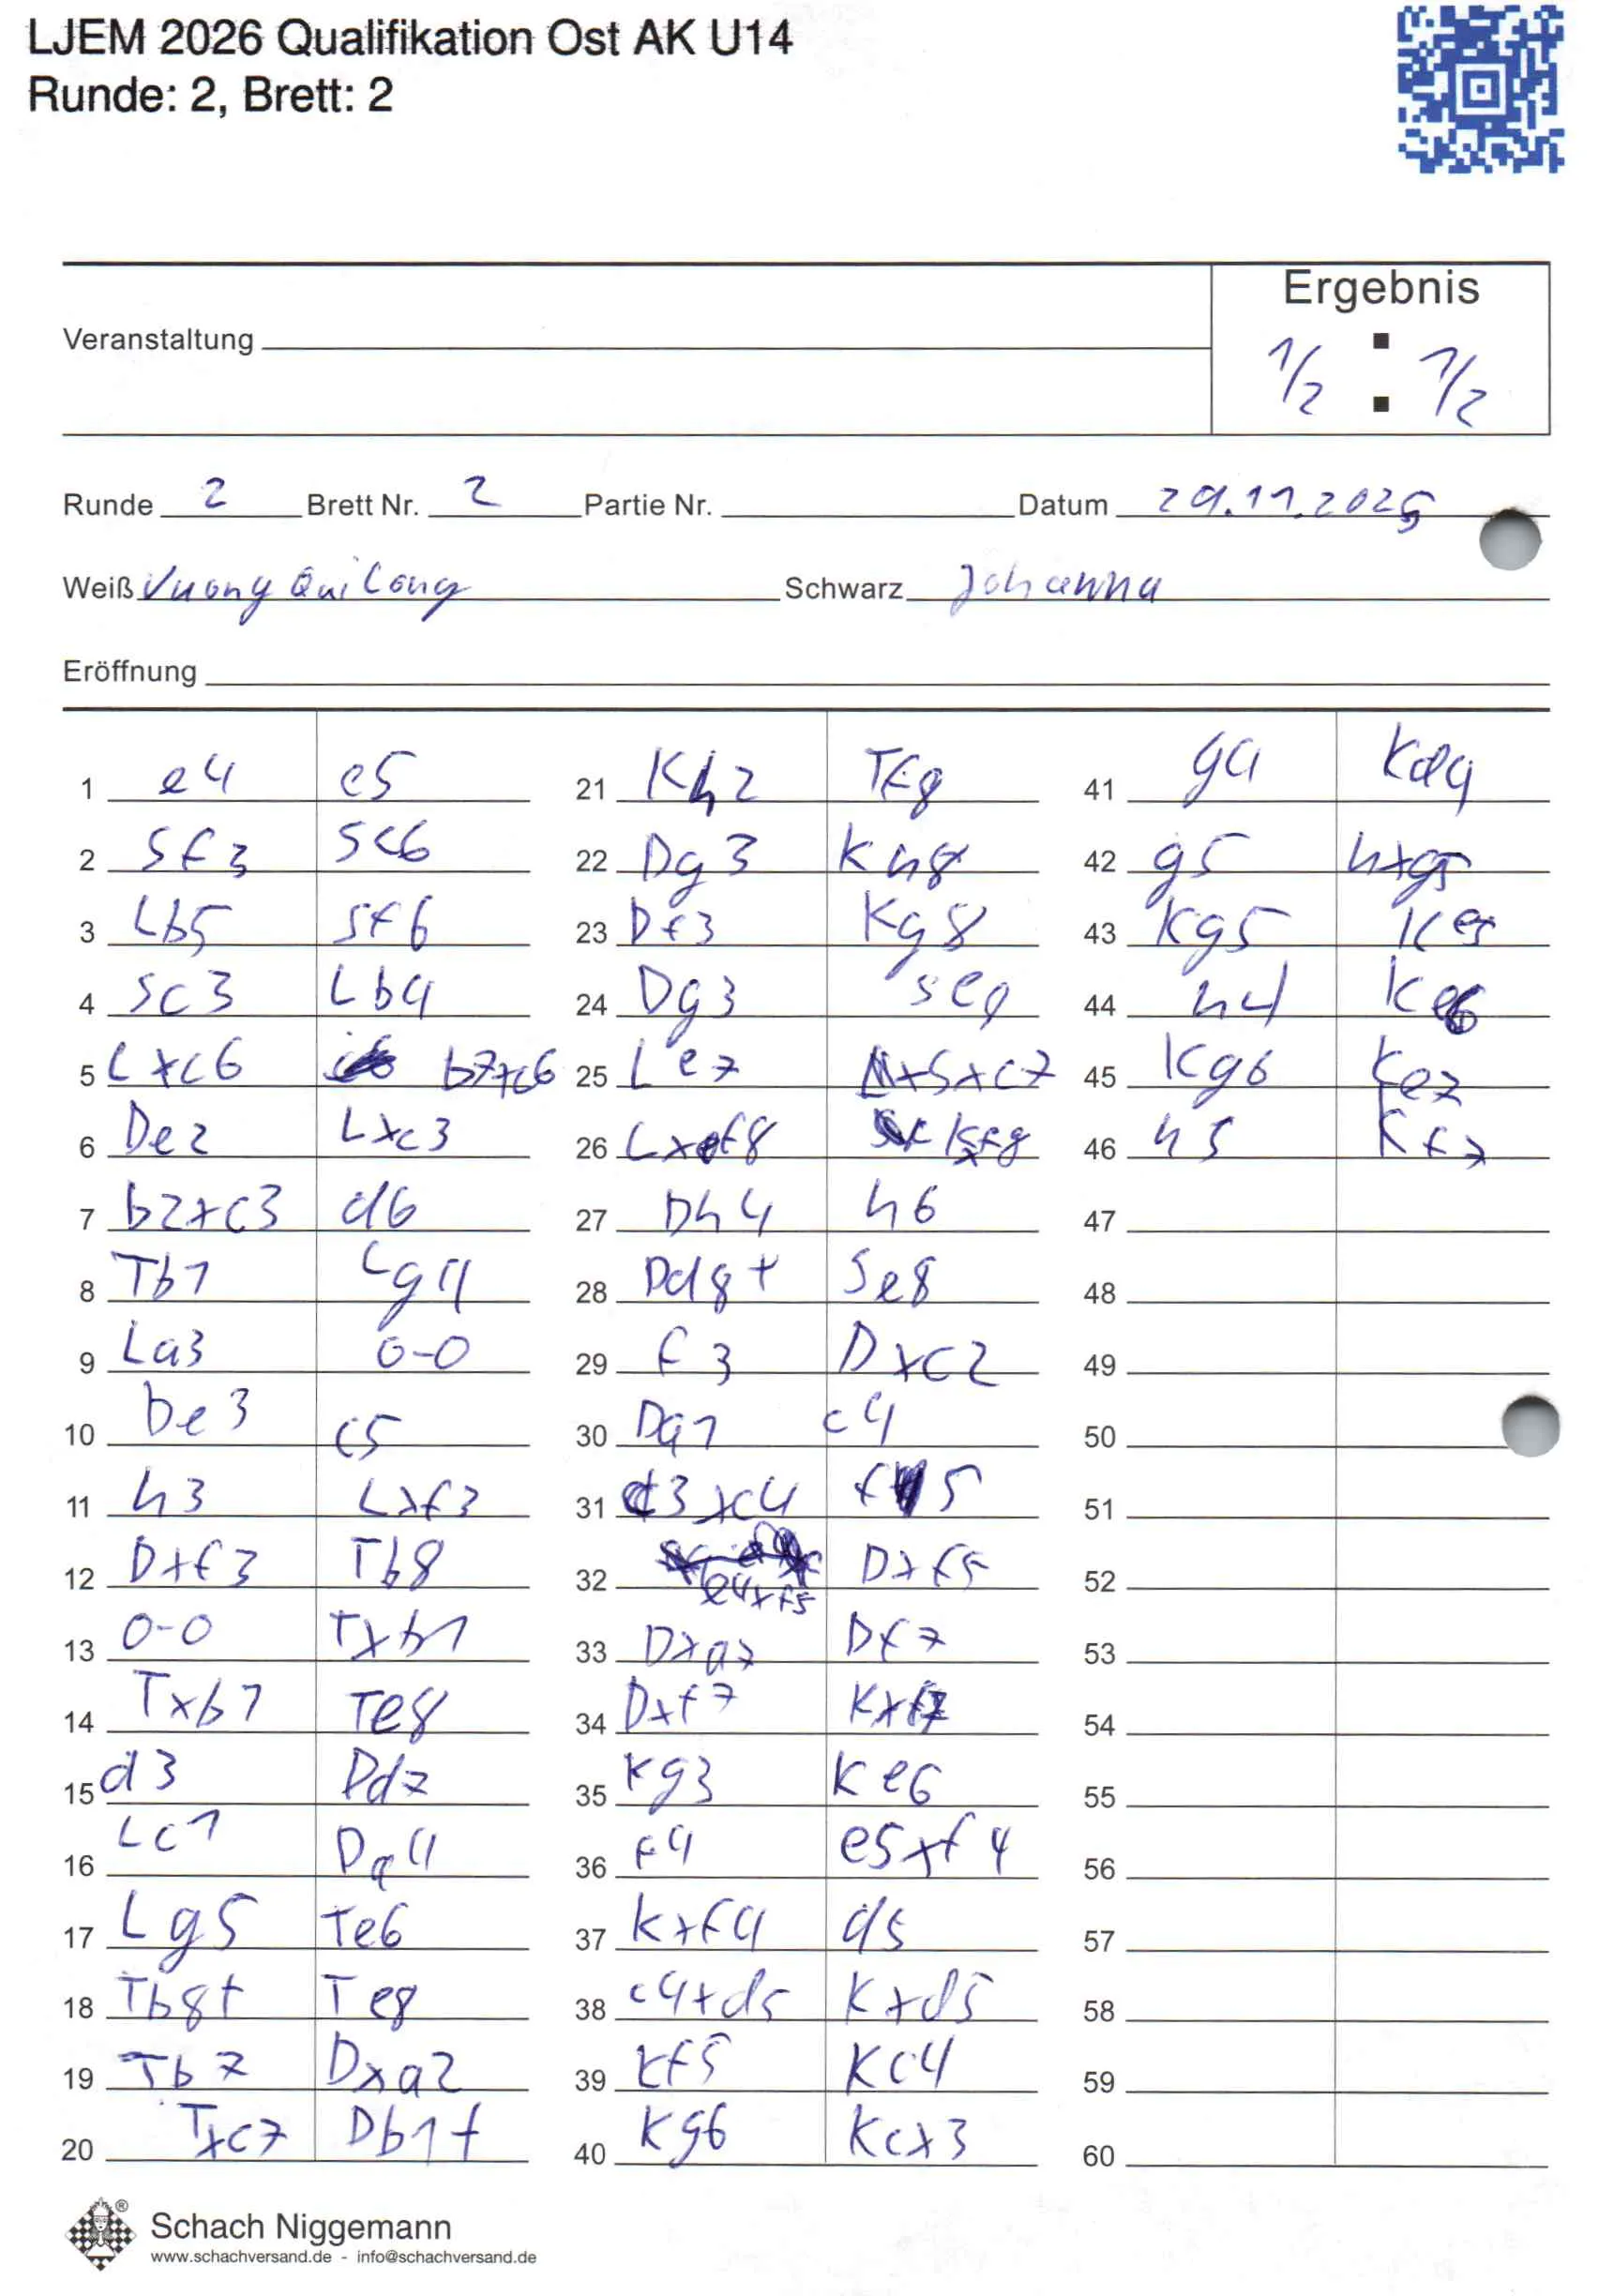 LJEM 2026 Qualifikation Ost AK U14
Runde: 2, Brett: 2
Ergebnis
Veranstaltung
1/2 : 1/2
Runde 2 Brett Nr. 2 Partie Nr. Datum 29.11.2025
Weiß Vuong Qui Long Schwarz Johanna
Eröffnung
1 e4 e5
2 Sf3 Sc6
3 Lb5 Sf6
4 Sc3 Lb4
5 Lxc6 b7xc6
6 De2 Lxc3
7 b2xc3 d6
8 Tb1 Lg4
9 La3 0-0
10 De3 c5
11 h3 Lxf3
12 Dxf3 Tb8
13 0-0 Txb1
14 Txb1 Te8
15 d3 Dd7
16 Lc1 Da4
17 Lg5 Te6
18 Tb8+ Te8
19 Tb7 Dxa2
20 Txc7 Db1+
21 Kh2 Tf8
22 Dg3 Kh8
23 Df3 Kg8
24 Dg3 Se8
25 Le7 Sxc7
26 Lxf8 Kxf8
27 Dh4 h6
28 Dd8+ Se8
29 f3 Dxc2
30 Da1 c4
31 d3xc4 f5
32 e4xf5 Dxf5
33 Dxa7 Df7
34 Dxf7 Kxf7
35 Kg3 Ke6
36 f4 e5xf4
37 Kxf4 d5
38 c4xd5 Kxd5
39 Kf5 Kc4
40 Kg6 Kcx3
41 g4 Kd4
42 g5 hxg5
43 Kg5 Ke5
44 h4 Ke6
45 Kg6 Ke7
46 h5 Kf7
47
48
49
50
51
52
53
54
55
56
57
58
59
60
Schach Niggemann
www.schachversand.de - info@schachversand.de